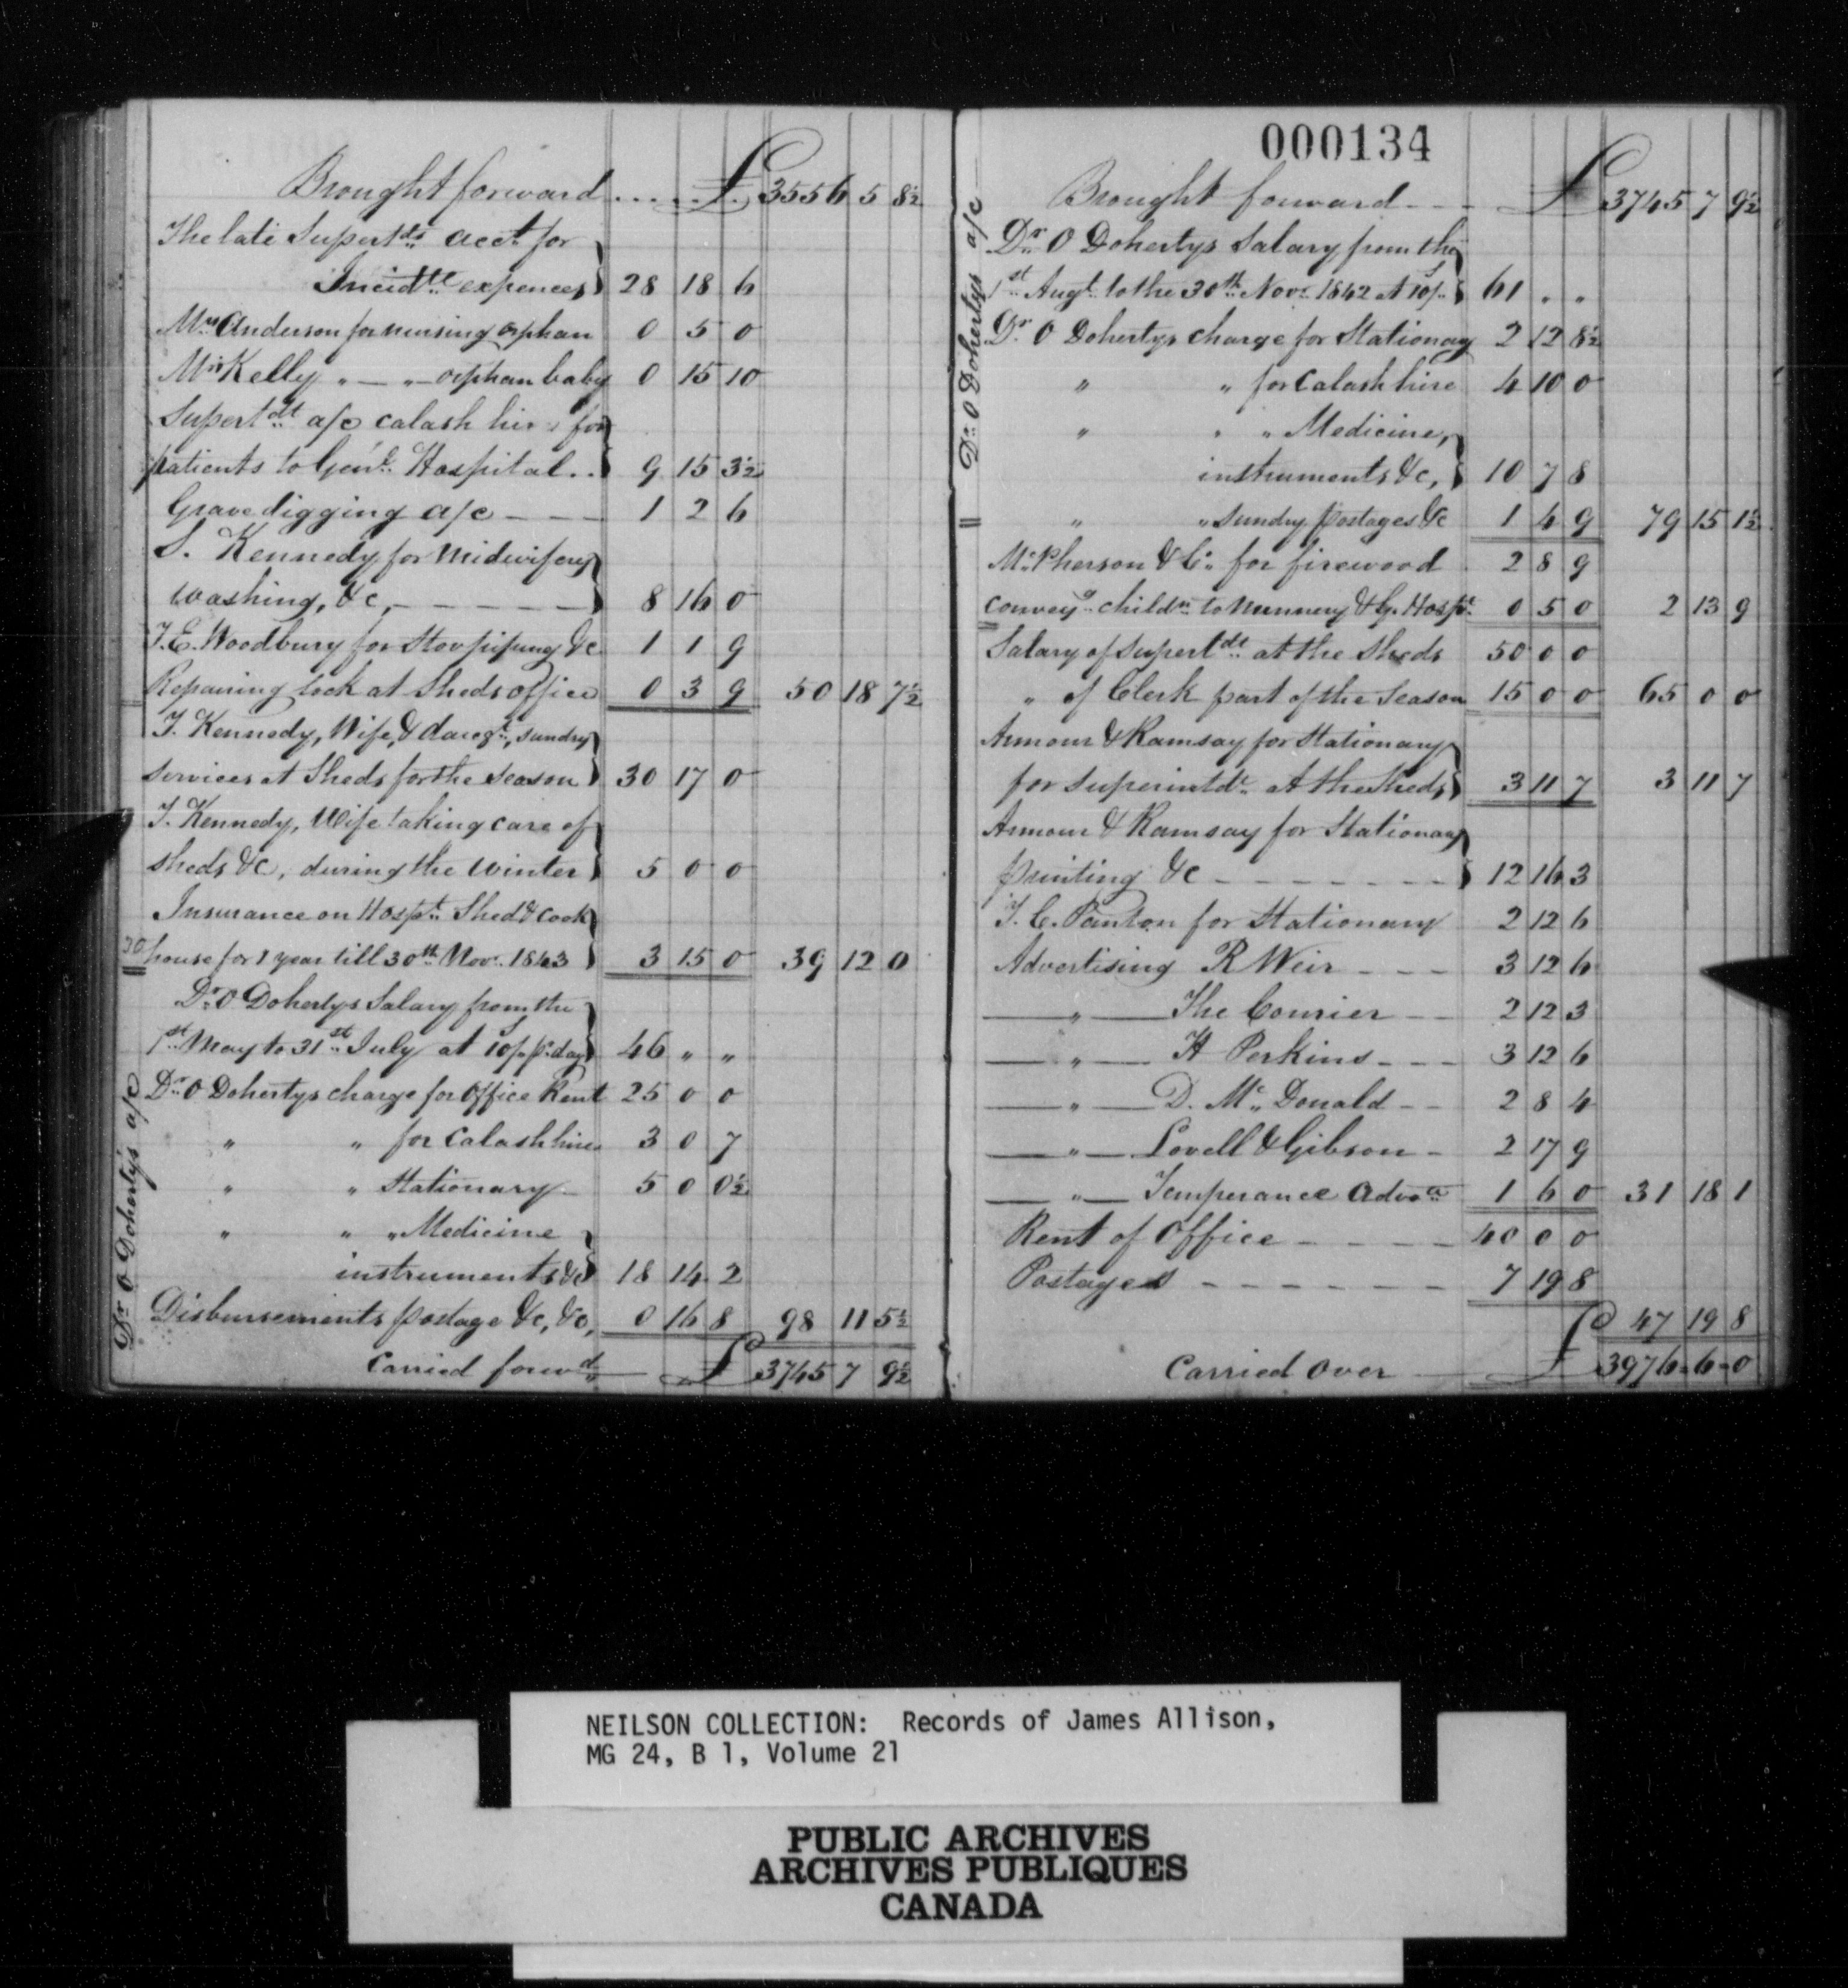 Brought forward .... £ 3556 5 8½
The late Supertdts acct for
Incidtl expences 28 18 6
Mrs Anderson for nursing orphan 0 5 0
Mrs Kelly " — " — orphan baby 0 15 10
Supertdt a/c calash hire for
patients to Genl Hospital .. 9 15 3½
Gravedigging a/c — — 1 2 6
S. Kennedy for Midwifery
washing, &c, — — — — — 8 16 0
T. E. Woodbury for Stovpipung &c 1 1 9
Repairing lock at Sheds office 0 3 9 50 18 7½
T. Kennedy, Wife, & daugt, sundry
services at Sheds for the season 30 17 0
T. Kennedy, Wife taking care of
sheds &c, during the winter 5 0 0
Insurance on Hospt Shed & Cook
house for 1 year till 30th Novr 1843 3 15 0 39 12 0
Dr O Dohertys Salary from the
1st May to 31st July at 10/ pr day 46 " "
Dr O Dohertys charge for Office Rent 25 0 0
" " for Calash hire 3 0 7
" " Stationary 5 0 0½
" " " Medicine
instruments &c 18 14 2
Disbursements postage &c, &c, 0 16 8 98 11 5½
Carried forwd £ 3745 7 9½
Dr O Doherty's a/c
000134
Brought forward - - - £ 3745 7 9½
Dr O Dohertys Salary from the
1st Augt to the 30th Novr 1842 at 10/ 61 " "
Dr O Dohertys charge for Stationay 2 12 8½
" " for Calash hire 4 10 0
" " " Medicine,
instruments &c, 10 7 8
" " sundry postages &c 1 4 9 79 15 1½
McPherson & Co for firewood 2 8 9
conveyg childn to Nunnery & G. Hospt 0 5 0 2 13 9
Salary of Supertdt at the Sheds 50 0 0
" of Clerk part of the Season 15 0 0 65 0 0
Armour & Ramsay for Stationary
for superintdt at the Sheds 3 11 7 3 11 7
Armour & Ramsay for Stationary
printing &c - - - - - - - 12 16 3
T. C. Panton for Stationary 2 12 6
Advertising R Weir - - - 3 12 6
— " — The Courier - - 2 12 3
— " — H Perkins - - - 3 12 6
— " — D. Mc Donald - - 2 8 4
— " — Lovell & Gibson - 2 17 9
— " — Temperance Advoce 1 6 0 31 18 1
Rent of Office - - - - 40 0 0
Postages - - - - - - 7 19 8
£ 47 19 8
Carried Over £ 3976 = 6 = 0
Dr O Dohertys a/c
NEILSON COLLECTION: Records of James Allison,
MG 24, B 1, Volume 21
PUBLIC ARCHIVES
ARCHIVES PUBLIQUES
CANADA